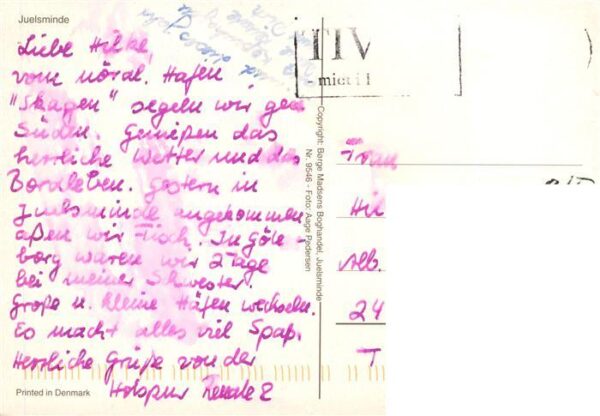 Juelsminde
Liebe Hilke,
vom nördl. Hafen
"Skagen" segeln wir gen
Süden. Genießen das
herrliche Wetter und das
Bordleben. Gestern in
Juelsminde angekommen
aßen wir Fisch. In Göte-
borg waren wir 2 Tage
bei meiner Schwester.
Große u. kleine Häfen wechseln.
Es macht alles viel Spaß.
Herzliche Grüße von der
Printed in Denmark
Copyright: Børge Madsens Boghandel, Juelsminde
Nr. 9546 - Foto: Aage Pedersen
TIV
Frau
Hil
Alb.
24
T